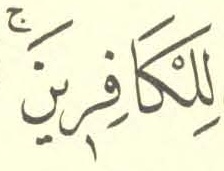 لِلْكَافِرِينَ ۚ ١